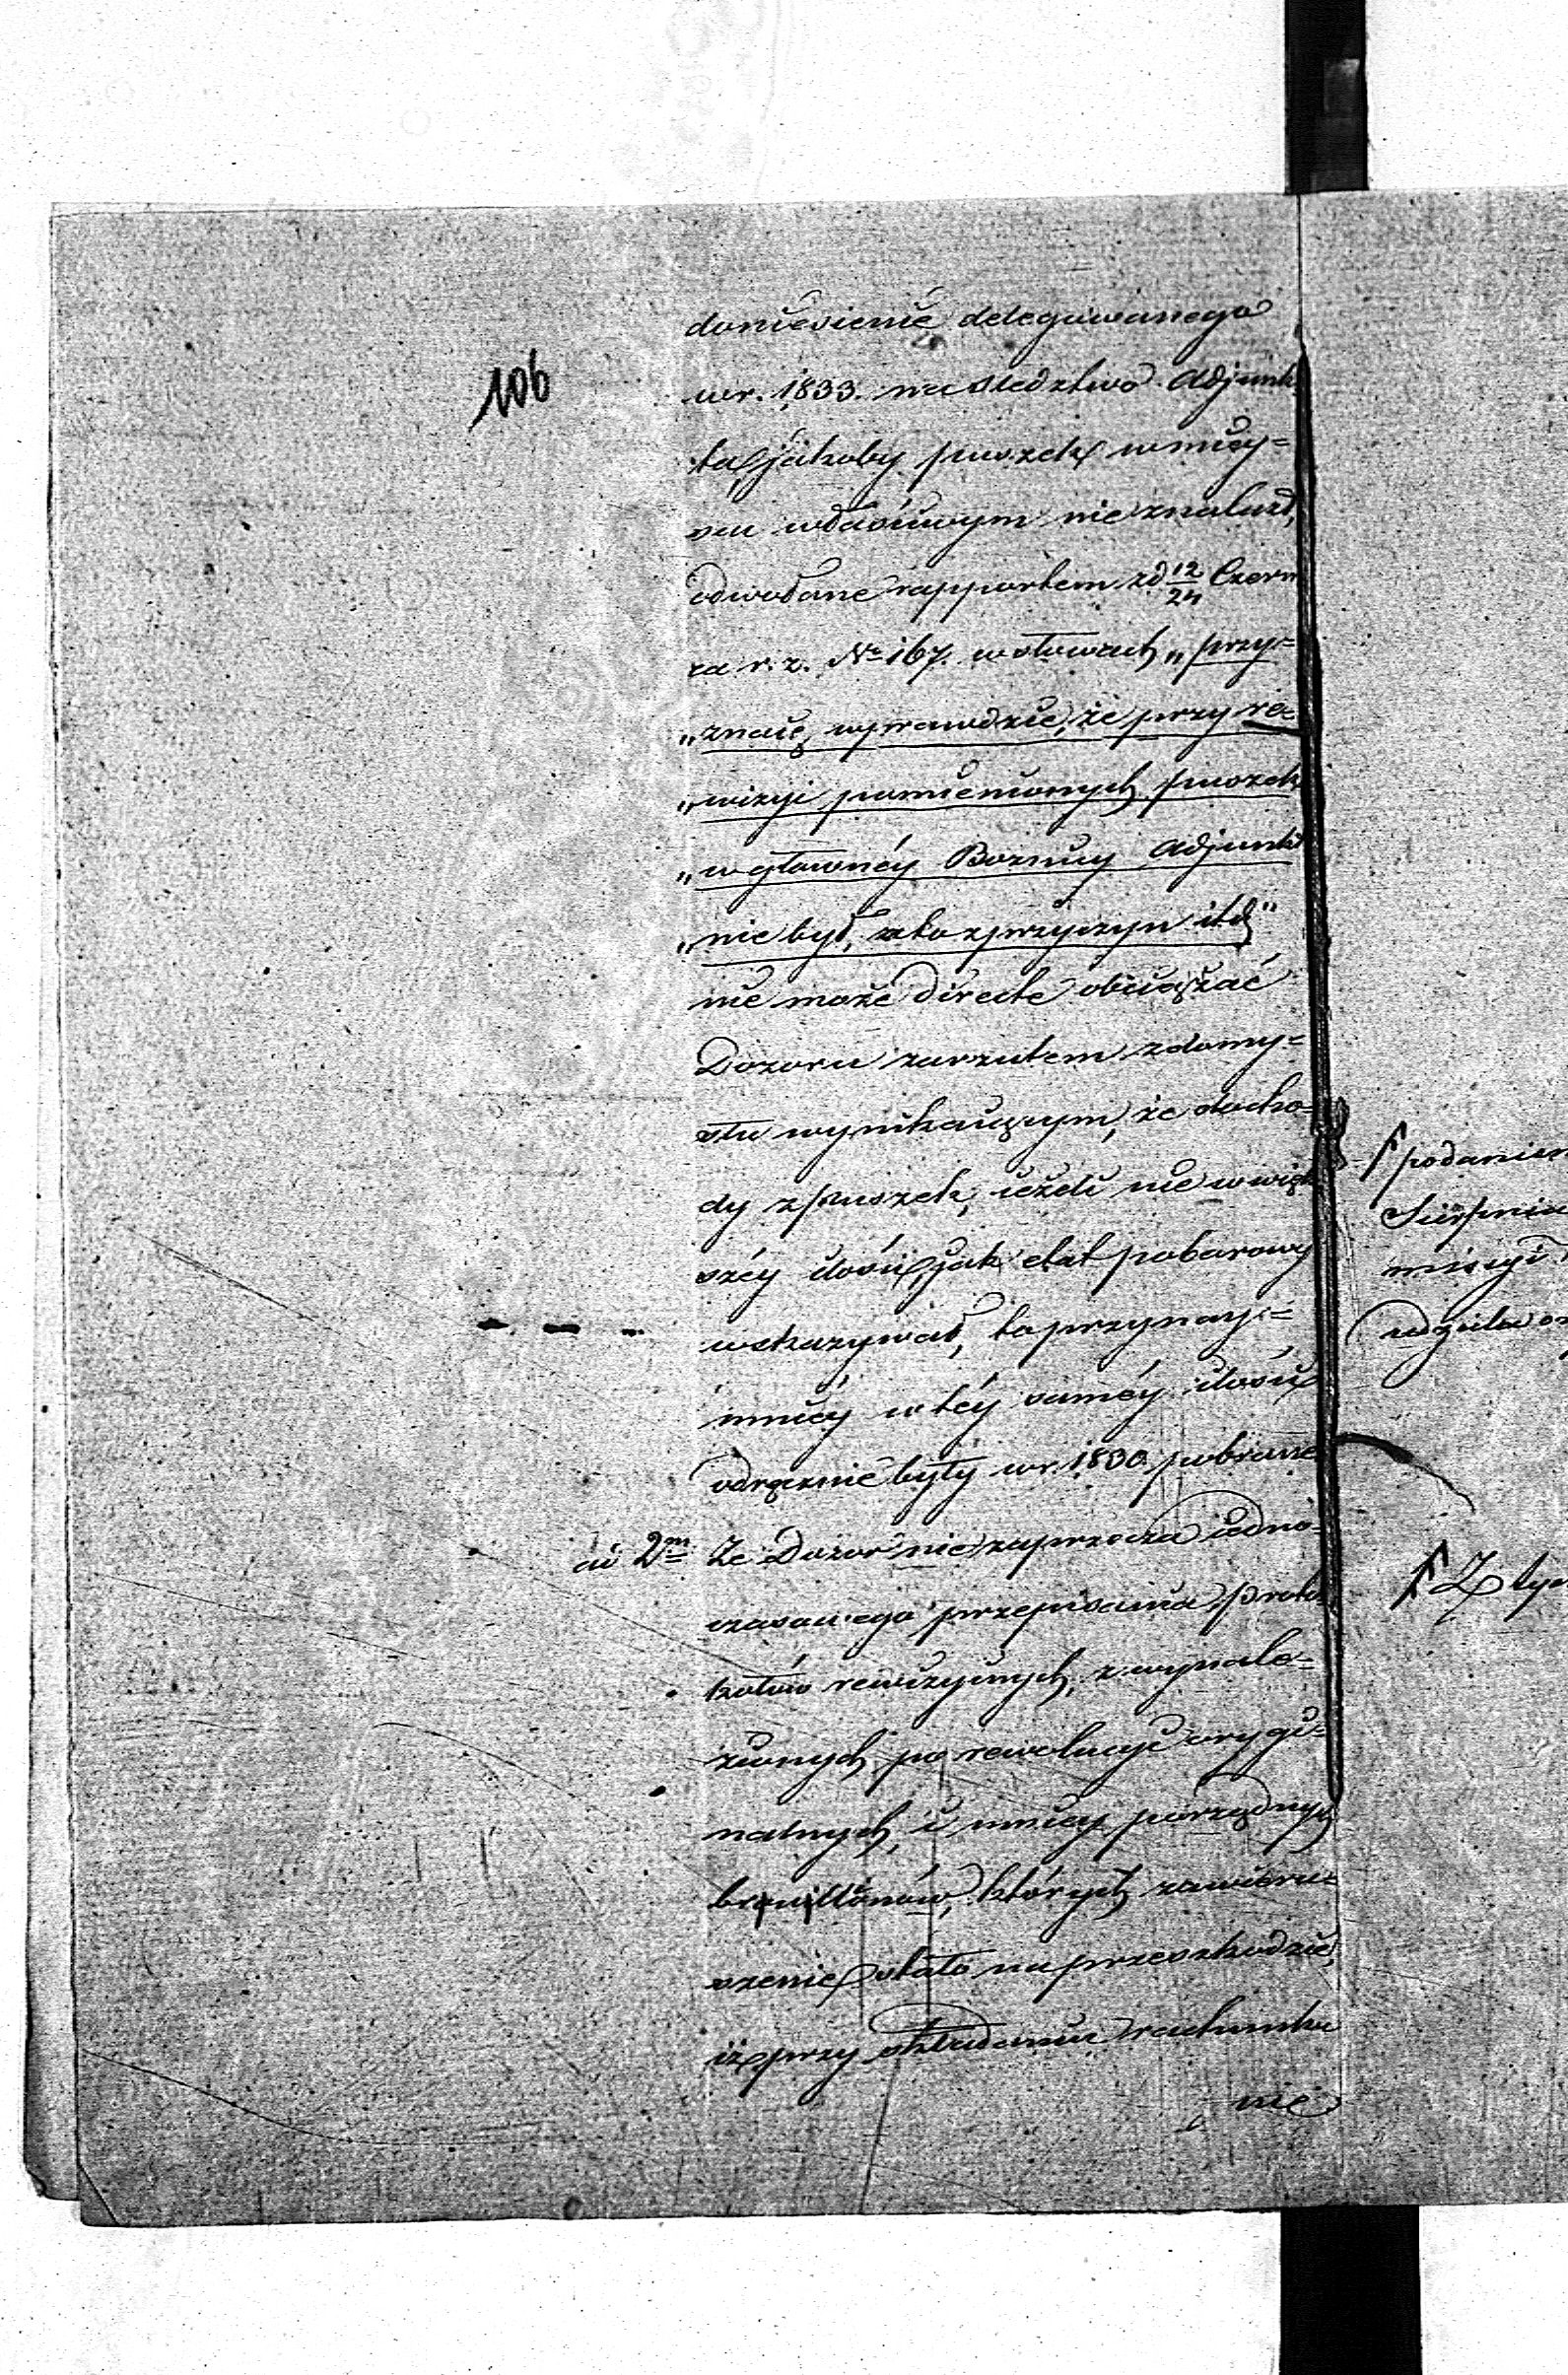 106
doniesienie delegowanego
w r. 1833. na śledztwo Adjunk
ta, jakoby puszek w miey=
scu właściwym nie znalazł,
odwołane rapportem z d 12/24 Czerw
ca r. z. № 167. w słowach „przy=
„znaię wprawdzie, że przy re=
„wizyi pomienionych puszek
„w głównéy Boznicy Adjunkt
„nie był, a to z przyczyn itd"
nie może directe obciążać
Dozoru zarzutem z domy=
słu wynikaiącym, że docho=
dy z puszek, ieżeli nie w więk
széy ilości, jak etat poborowy
wskazywał, to przynay=
mniéy w téy saméy ilości
odręcznie były w r. 1830. pobrane
ad 2m Że Dozór nie zaprzecza iedno=
czasowego przepisania proto=
kołów rewizyinych, z wynale=
zionych po rewolucyi orygi=
nalnych, i mniéy porządnych
brouillonów, których zawieru=
szenie stało na przeszkodzie,
iż przy składaniu rachunku
nie
podaniem
Sierpnia
missyi
udziela
Z tym